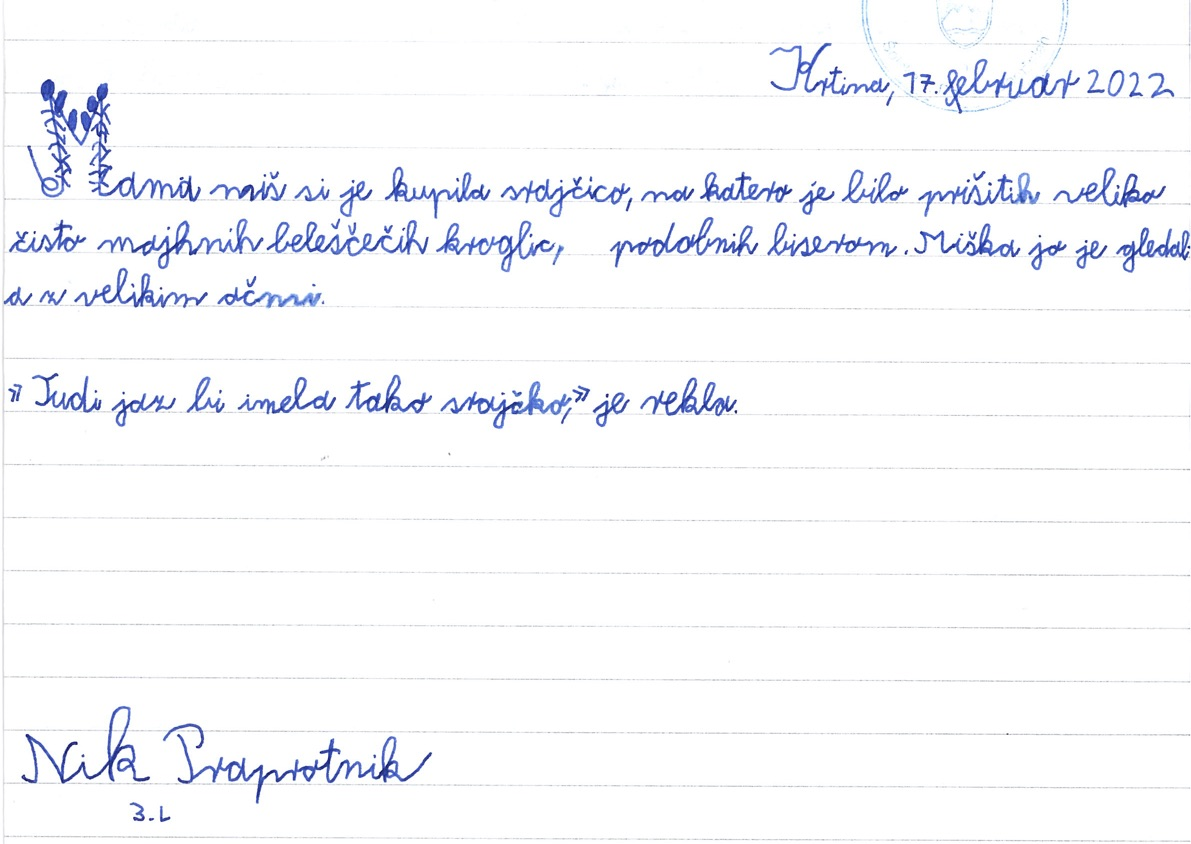 Krtina, 17. februar 2022
Mama miš si je kupila srajčico, na katero je bilo prišitih veliko
čisto majhnih beleščečih kroglic, podobnih biserom. Miška jo je gledal
a z velikim očmi.
»Tudi jaz bi imela tako srajčko,» je rekla.
Nik Praprotnik
3.L